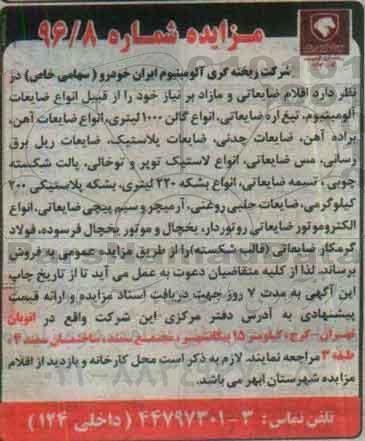 مزایده شماره ۹۶/۸
شرکت ریخته گری آلومینیوم ایران خودرو ( سهامی خاص) در
نظر دارد اقلام ضایعاتی و مازاد بر نیاز خود را از قبیل انواع ضایعات
آلومینیوم، تیغ اره ضایعاتی، انواع گالن ۱۰۰۰ لیتری، انواع ضایعات آهن،
براده آهن، ضایعات چدنی، ضایعات پلاستیک، ضایعات ریل برق
رسانی، مس ضایعاتی، انواع لاستیک توپر و توخالی، پالت شکسته
چوبی، تسمه ضایعاتی، انواع بشکه ۲۲۰ لیتری، بشکه پلاستیکی ۲۰۰
کیلوگرمی، ضایعات حلبی روغنی، آرمیچر و سیم پیچی ضایعاتی، انواع
الکتروموتور ضایعاتی روتوردار، یخچال و موتور یخچال فرسوده، فولاد
گرمکار ضایعاتی (قالب شکسته) را از طریق مزایده عمومی به فروش
برساند. لذا از کلیه متقاضیان دعوت به عمل می آید تا از تاریخ چاپ
این آگهی به مدت ۷ روز جهت دریافت اسناد مزایده و ارائه قیمت
پیشنهادی به آدرس دفتر مرکزی این شرکت واقع در اتوبان
تهران-کرج، کیلومتر ۱۵ پیکانشهر، مجتمع سمند، ساختمان سمند ۴
طبقه ۳ مراجعه نمایند. لازم به ذکر است محل کارخانه و بازدید از اقلام
مزایده شهرستان ابهر می باشد.
تلفن تماس: ۳-۴۴۷۹۷۳۰۱ ( داخلی ۱۲۴)